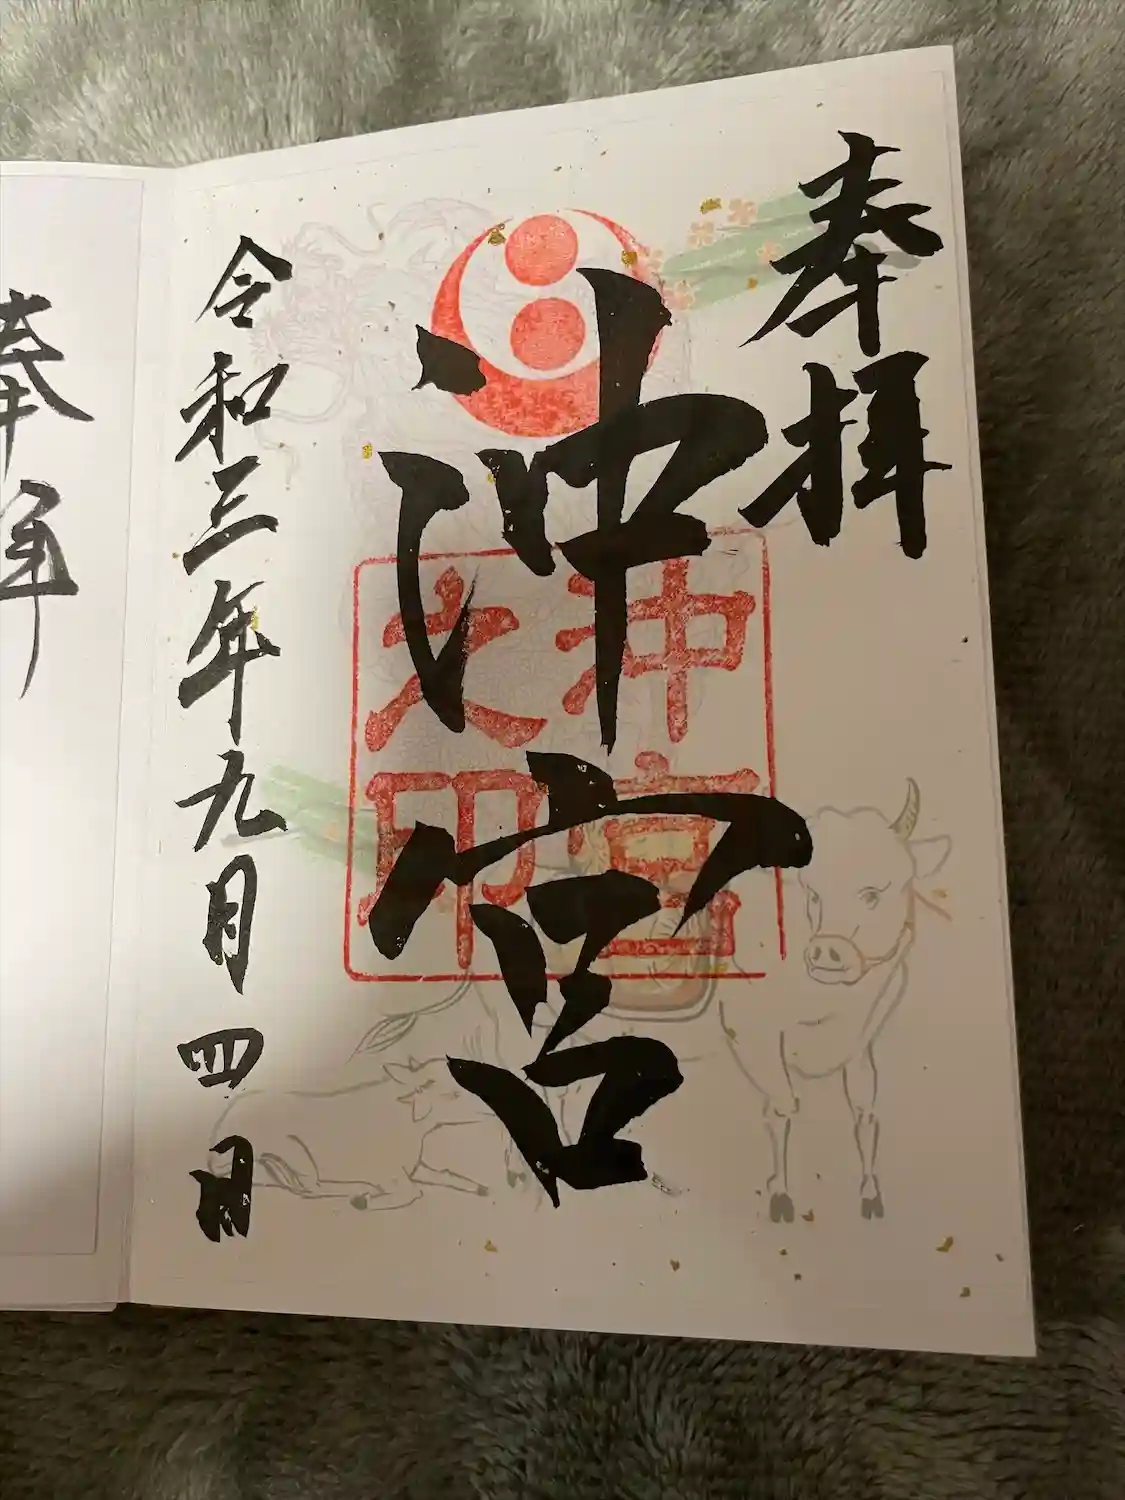 奉拝
沖宮
沖宮
之印
令和三年九月四日
奉拝